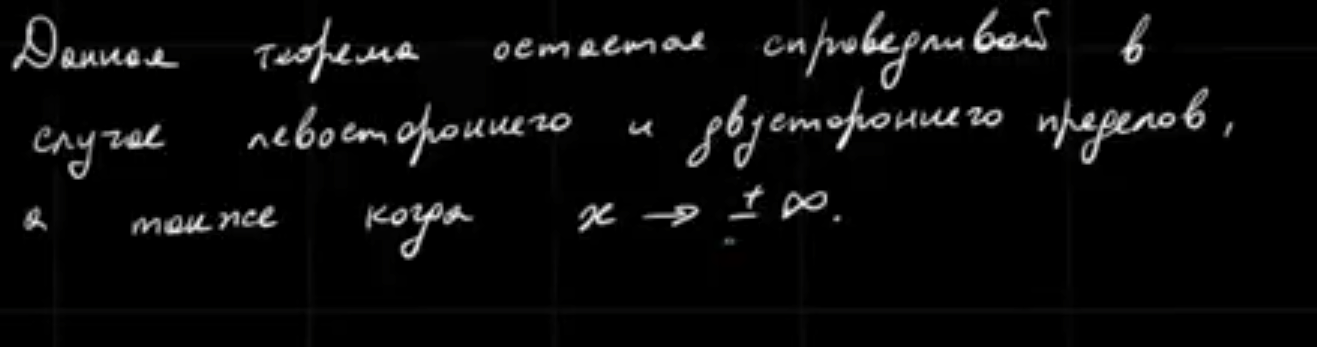 Данная теорема остается справедливой в
случае левостороннего и двустороннего пределов,
а также когда x → ± ∞.